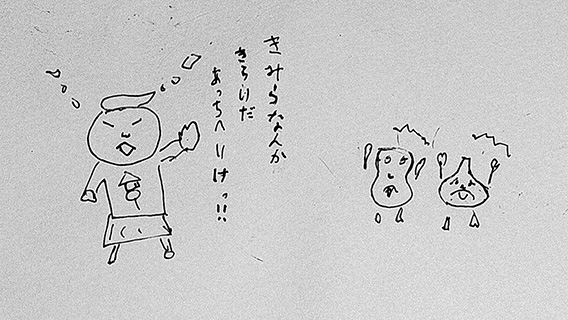 きみらなんか
きらいだ
あっちへいけっ!!